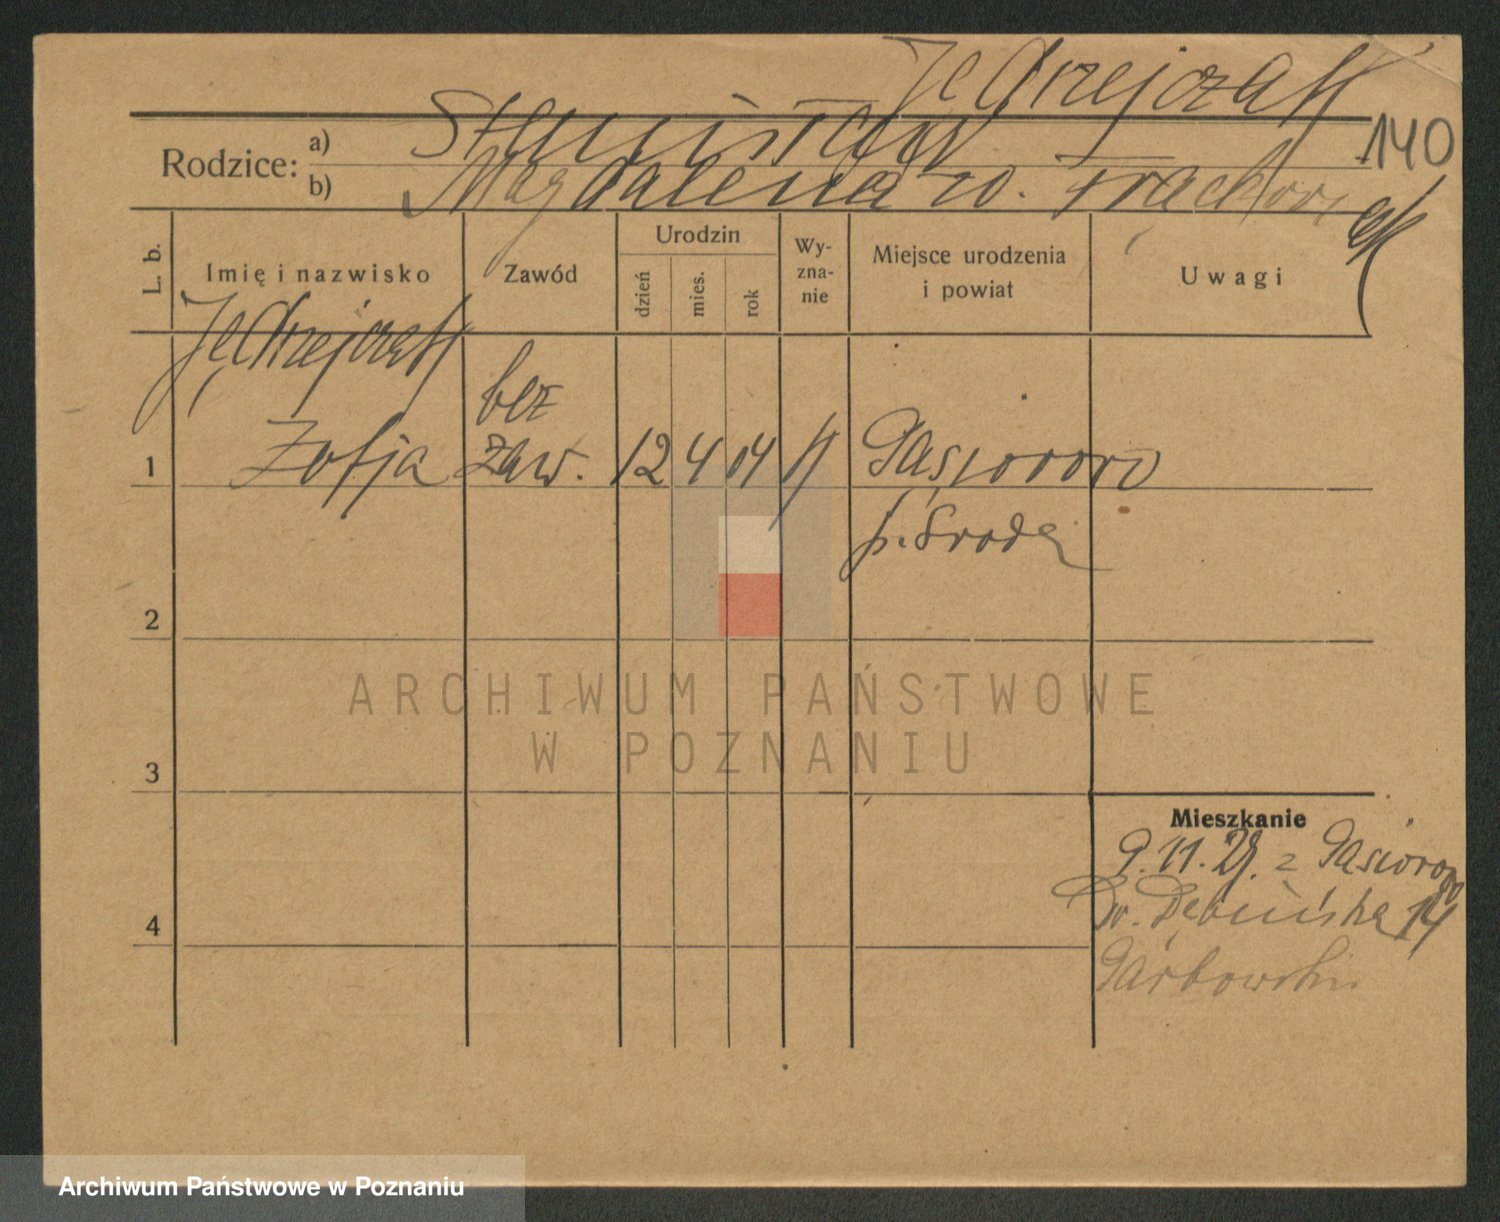 Jędrzejczak
140
Rodzice: a) Stanisław
b) Magdalena ur. Frąckowiak
L. b.
Imię i nazwisko
Zawód
Urodzin
dzień
mies.
rok
Wy-
zna-
nie
Miejsce urodzenia
i powiat
Uwagi
Jędrzejczak
bez
1 Zofja zaw. 12 4 04 k Gąsiorowo
p. Środa
2
ARCHIWUM PAŃSTWOWE
W POZNANIU
3
Mieszkanie
9.11.29. z Gąsiorowo
Dębińska 14
4
Garbowski
Archiwum Państwowe w Poznaniu